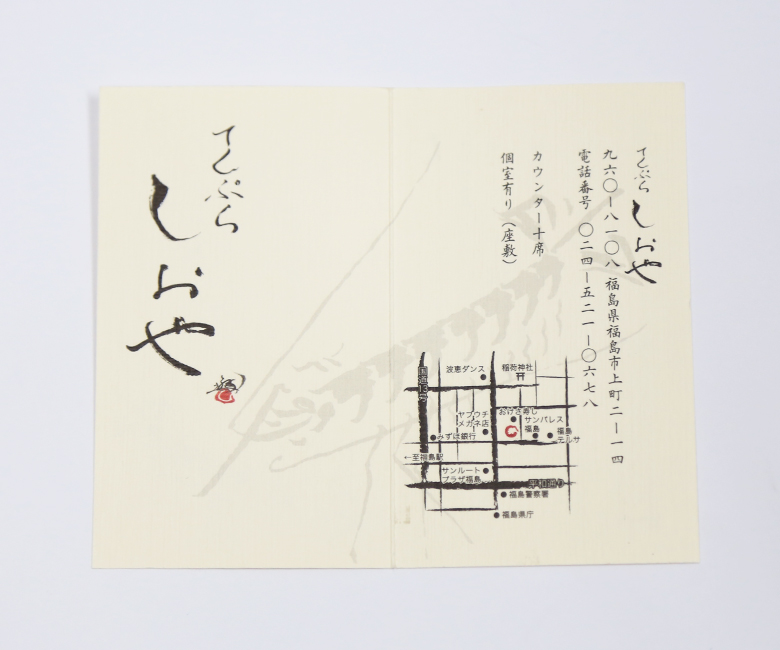 てんぷら
しおや
てんぷら しおや
九六〇ー八一〇八 福島県福島市上町二ー一四
電話番号 〇二四ー五二一ー〇六七八
カウンター十席
個室有り（座敷）
国道13号
波恵ダンス
稲荷神社
おけさ寿し
ヤブウチ
メガネ店
サンパレス
福島
福島
テルサ
みずほ銀行
←至福島駅
サンルート
プラザ福島
平和通り
福島警察署
福島県庁